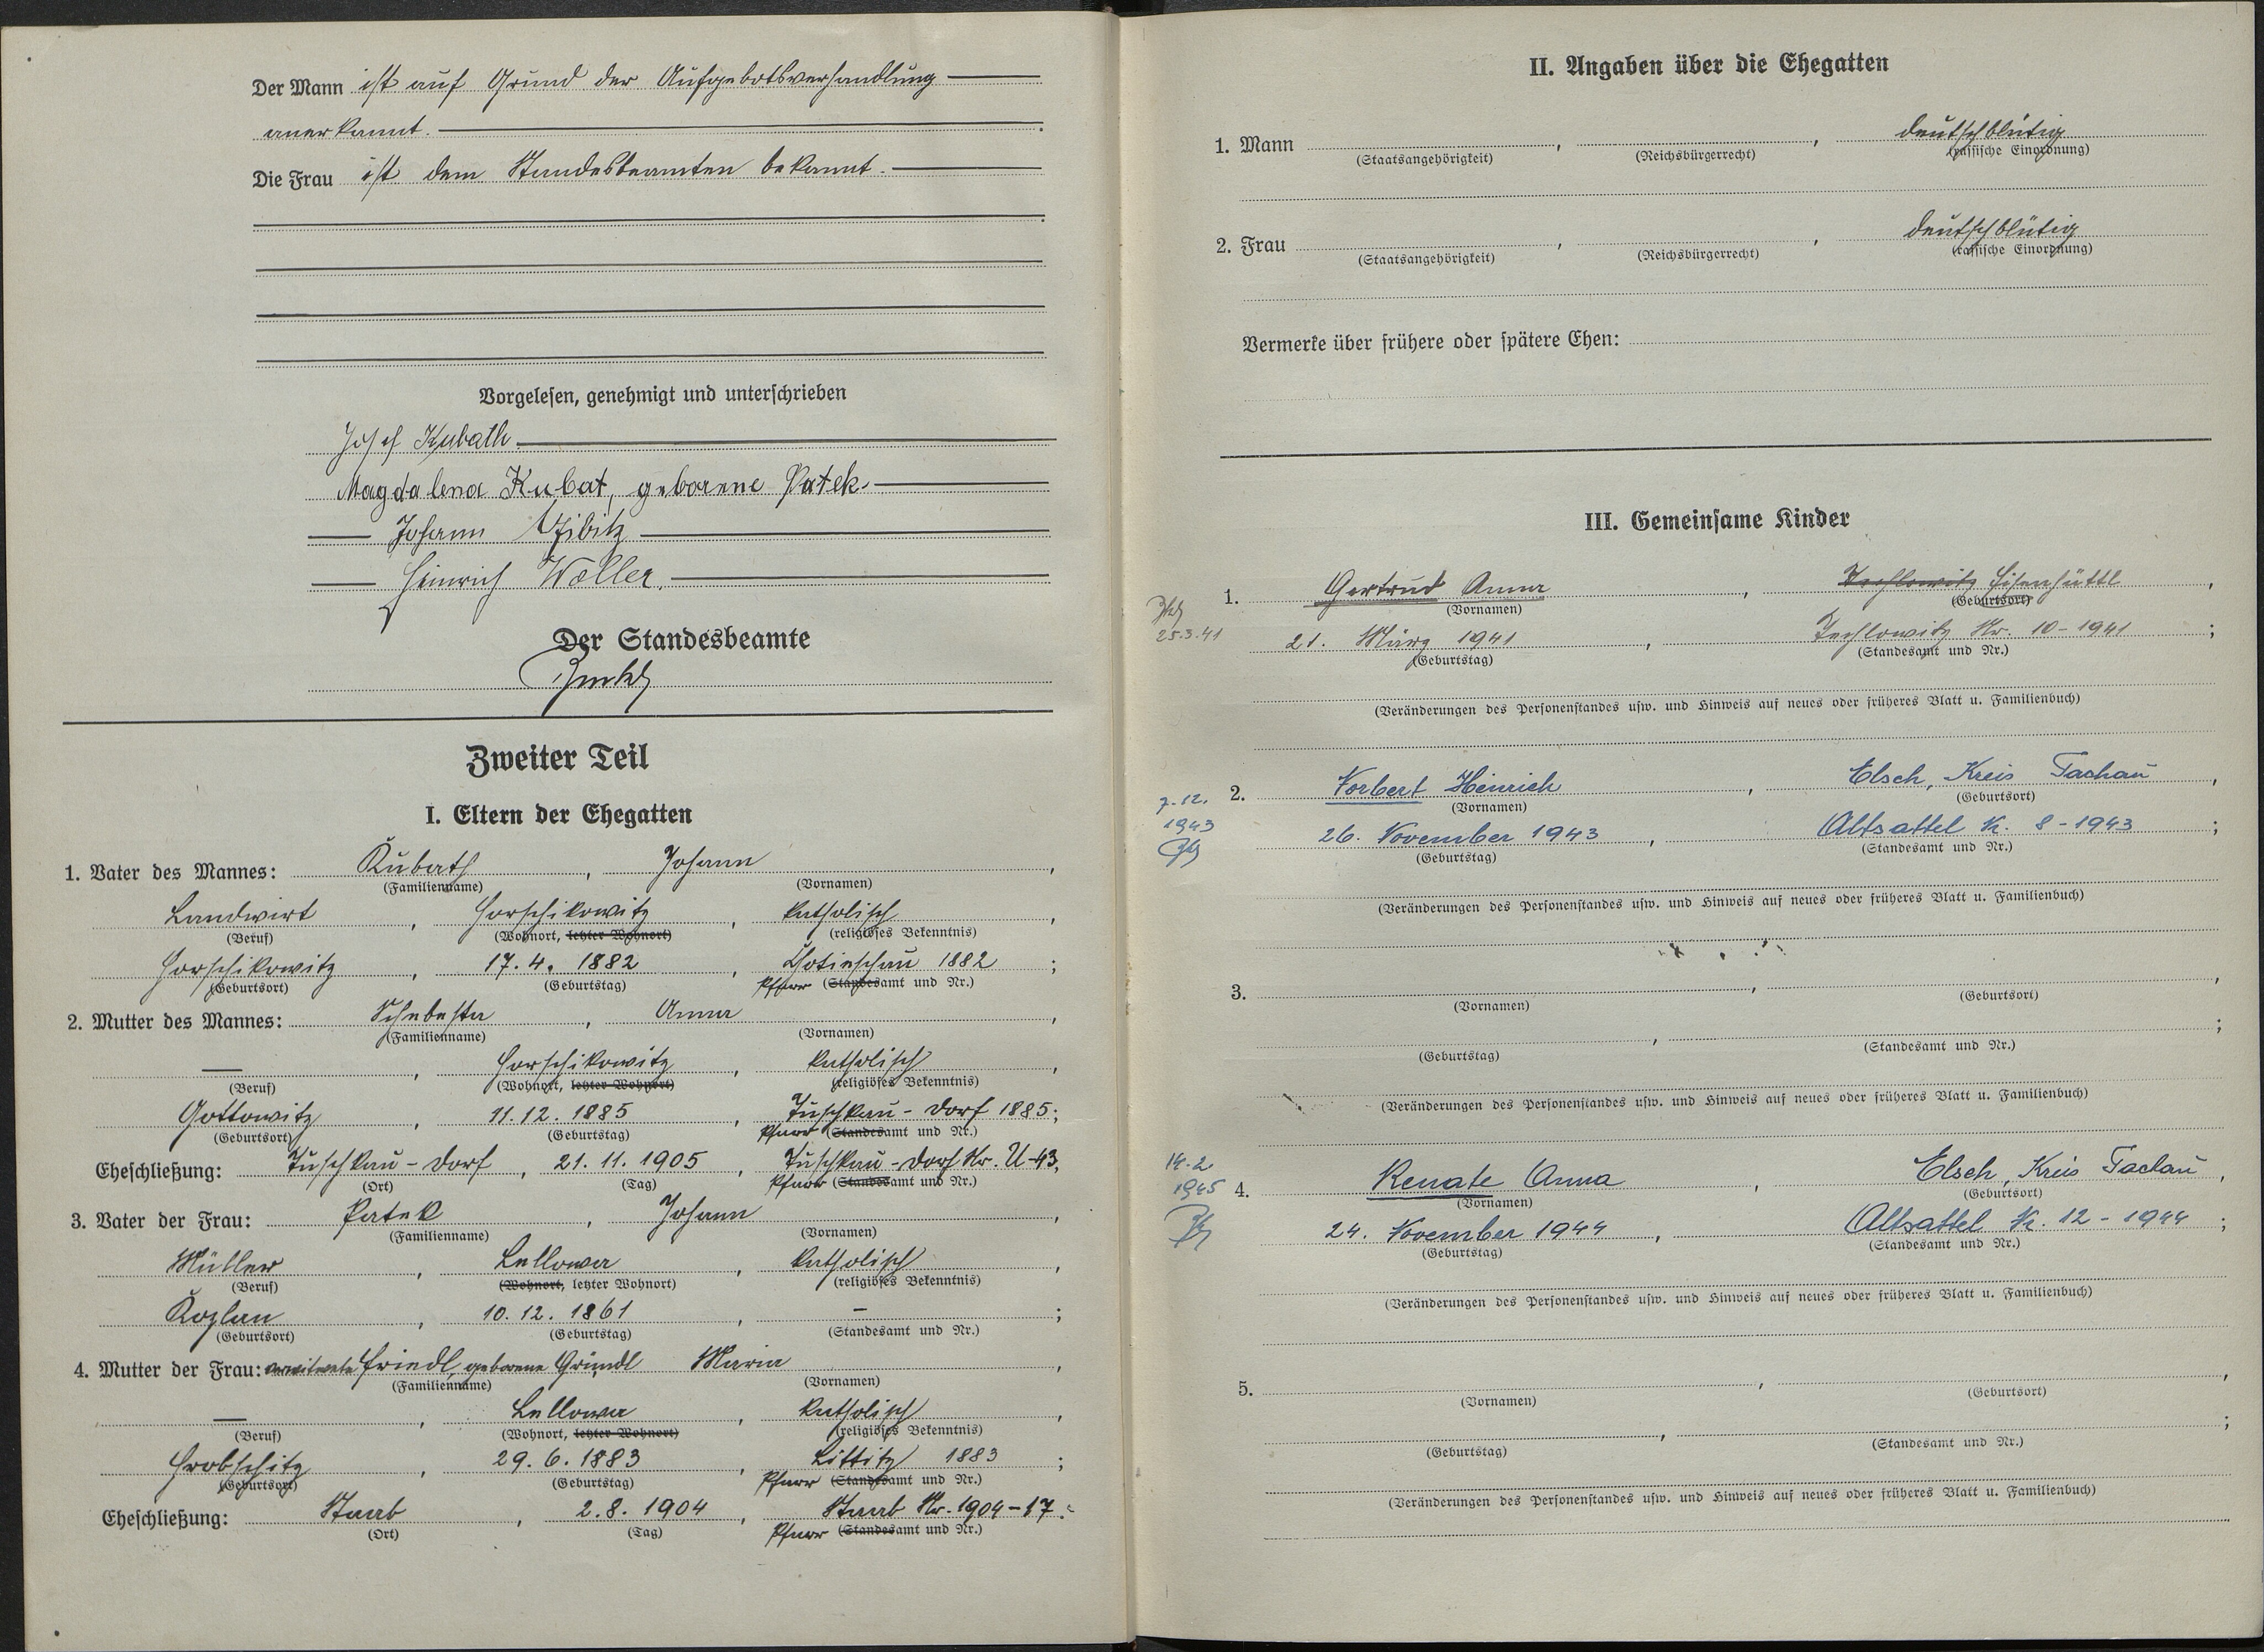 Der Mann ist auf Grund der Aufgebotsverhandlung
anerkannt.
Die Frau ist dem Standesbeamten bekannt.
Vorgelesen, genehmigt und unterschrieben
Josef Kubath
Magdalena Kubat, geborene Patek.
Johann
Heinrich Woller.
Der Standesbeamte
Zweiter Teil
I. Eltern der Ehegatten
1. Vater des Mannes: Kubath, Johann,
(Familienname) (Vornamen)
Landwirt, Horschikowitz, katholisch,
(Beruf) (Wohnort, letzter Wohnort) (religiöses Bekenntnis)
Horschikowitz, 17.4.1882, Chotieschau 1882;
(Geburtsort) (Geburtstag) Pfarr (Standesamt und Nr.)
2. Mutter des Mannes: Schebesta, Anna,
(Familienname) (Vornamen)
—, Horschikowitz, katholisch,
(Beruf) (Wohnort, letzter Wohnort) (religiöses Bekenntnis)
Gottowitz, 11.12.1885, Tuschkau-Dorf 1885;
(Geburtsort) (Geburtstag) Pfarr (Standesamt und Nr.)
Eheschließung: Tuschkau-Dorf, 21.11.1905, Tuschkau-Dorf Nr. U-43.
(Ort) (Tag) Pfarr (Standesamt und Nr.)
3. Vater der Frau: Patek, Johann,
(Familienname) (Vornamen)
Müller, Lellowa, katholisch,
(Beruf) (Wohnort, letzter Wohnort) (religiöses Bekenntnis)
Kozlan, 10.12.1861, —;
(Geburtsort) (Geburtstag) (Standesamt und Nr.)
4. Mutter der Frau: verwitwete Friedl, geborene Gründl Maria,
(Familienname) (Vornamen)
—, Lellowa, katholisch,
(Beruf) (Wohnort, letzter Wohnort) (religiöses Bekenntnis)
Hrobschitz, 29.6.1883, Littitz 1883;
(Geburtsort) (Geburtstag) Pfarr (Standesamt und Nr.)
Eheschließung: Staab, 2.8.1904, Staab Nr. 1904-17.
(Ort) (Tag) Pfarr (Standesamt und Nr.)
II. Angaben über die Ehegatten
1. Mann , , deutschblütig
(Staatsangehörigkeit) (Reichsbürgerrecht) (rassische Einordnung)
2. Frau , , deutschblütig
(Staatsangehörigkeit) (Reichsbürgerrecht) (rassische Einordnung)
Vermerke über frühere oder spätere Ehen:
III. Gemeinsame Kinder
1. Gertrud Anna, Techlowitz Eisenhüttl,
(Vornamen) (Geburtsort)
25.3.41
21. März 1941, Techlowitz Nr. 10-1941;
(Geburtstag) (Standesamt und Nr.)
(Veränderungen des Personenstandes usw. und Hinweis auf neues oder früheres Blatt u. Familienbuch)
7.12.
1943
2. Norbert Heinrich, Elsch, Kreis Tachau,
(Vornamen) (Geburtsort)
26. November 1943, Altsattel Nr. 8-1943;
(Geburtstag) (Standesamt und Nr.)
(Veränderungen des Personenstandes usw. und Hinweis auf neues oder früheres Blatt u. Familienbuch)
3. , ,
(Vornamen) (Geburtsort)
, ;
(Geburtstag) (Standesamt und Nr.)
(Veränderungen des Personenstandes usw. und Hinweis auf neues oder früheres Blatt u. Familienbuch)
14.2
1945
4. Renate Anna, Elsch, Kreis Tachau,
(Vornamen) (Geburtsort)
24. November 1944, Altsattel Nr. 12-1944;
(Geburtstag) (Standesamt und Nr.)
(Veränderungen des Personenstandes usw. und Hinweis auf neues oder früheres Blatt u. Familienbuch)
5. , ,
(Vornamen) (Geburtsort)
, ;
(Geburtstag) (Standesamt und Nr.)
(Veränderungen des Personenstandes usw. und Hinweis auf neues oder früheres Blatt u. Familienbuch)